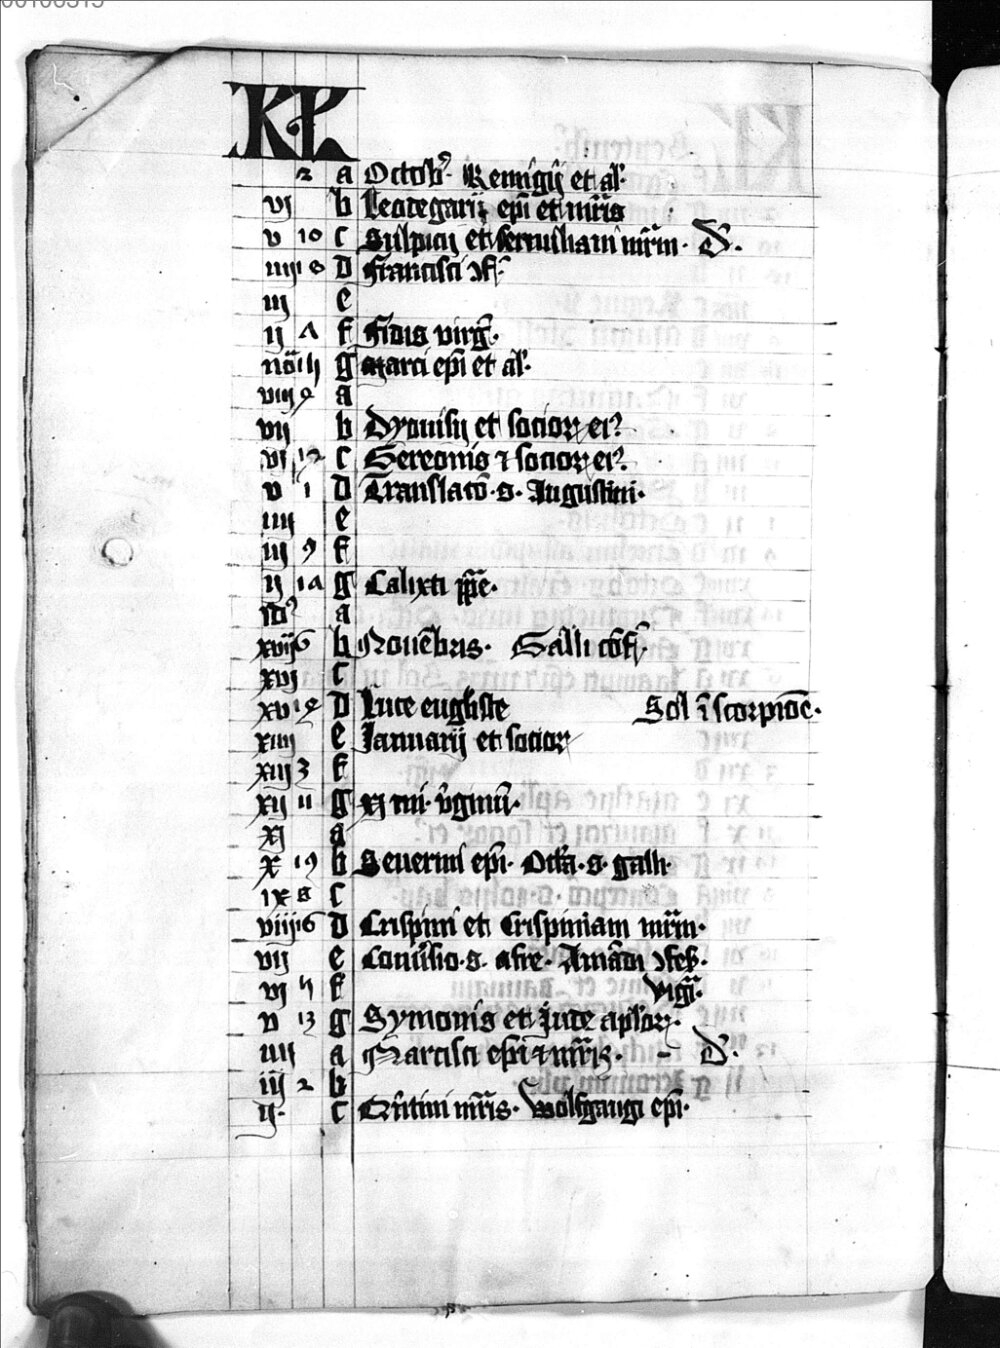 KL
2 a Octob᷒. Remigij et al᷒.
vj b Leodegarij ep̄i et mr̄is
v 10 c Sulpicij et serviliani mr̄m. D.
iiij 8 d Francisci ↄf.
iij e
ij Λ f Fidis virḡ.
nōās g Marci ep̄i et al᷒.
viij 9 a
vij b Dyonisij et socioꝝ ei᷒.
vj 12 c Gereonis ⁊ socioꝝ ei᷒.
v 1 d Translatō. s. Augustini.
iiij e
iij 9 f
ij 1Λ g Calixti pp̄e.
id᷒ a
xvij 6 b Nouēbris. Galli cōf.
xvj c
xv 18 d Luce euḡliste Sol ī scorpiōe.
xiiij e Januarij et socioꝝ
xiij 3 f
xij 11 g xj mī. v̄ginū.
xj a
x 19 b Seuerini ep̄i. Octa. s. galli.
ix 8 c
viij 16 d Crispini et Crispiniani mr̄m.
vij e Conuͥsio. s. afre. Amādi ↄfes.
vj 5 f Vigī.
v 13 g Symonis et Jude ap̄loꝝ.
iiij a Narcisci ep̄i ⁊ mr̄is. - D.
iij 2 b
ij. c Qn̄tini mr̄is. Wolfgangi ep̄i.